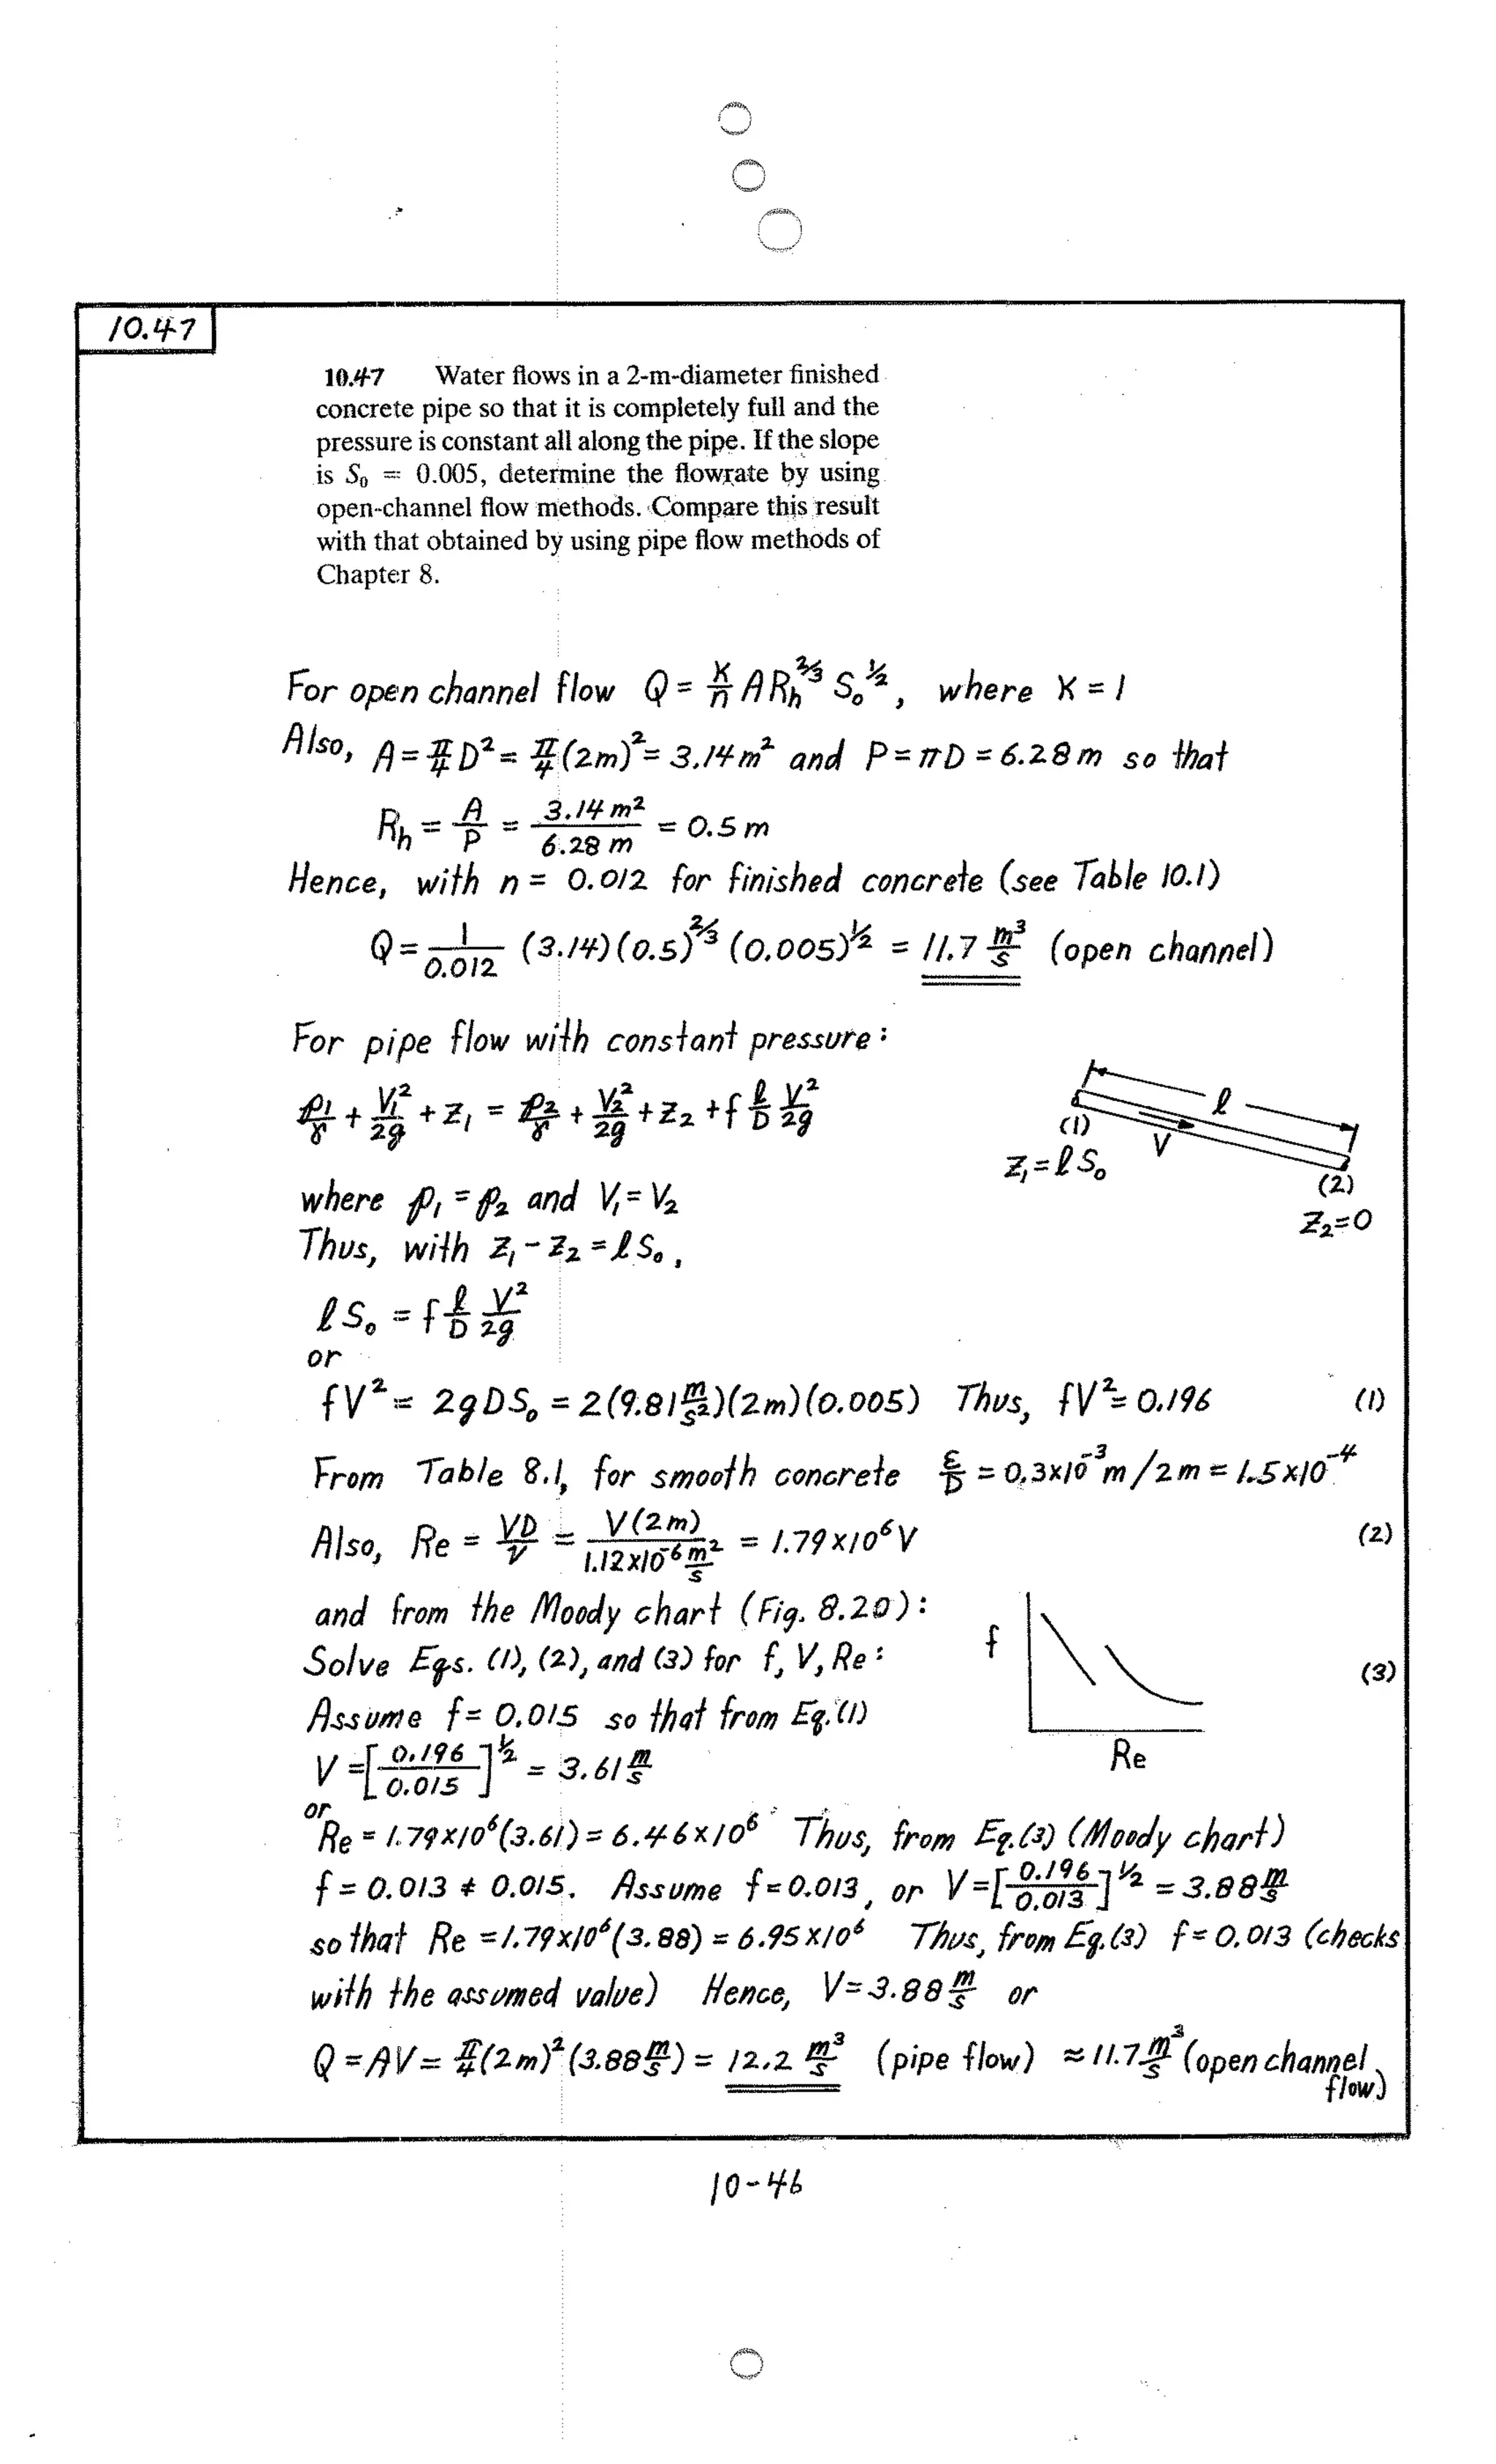 10.47
10.47 Water flows in a 2-m-diameter finished
concrete pipe so that it is completely full and the
pressure is constant all along the pipe. If the slope
is S₀ = 0.005, determine the flowrate by using
open-channel flow methods. Compare this result
with that obtained by using pipe flow methods of
Chapter 8.
For open channel flow Q = K/n A R_h^(2/3) S₀^(1/2), where K = 1
Also, A = π/4 D² = π/4 (2m)² = 3.14 m² and P = πD = 6.28 m so that
R_h = A/P = 3.14 m²/6.28 m = 0.5 m
Hence, with n = 0.012 for finished concrete (see Table 10.1)
Q = 1/0.012 (3.14)(0.5)^(2/3) (0.005)^(1/2) = 11.7 m³/s (open channel)
For pipe flow with constant pressure:
p₁/γ + V₁²/2g + z₁ = p₂/γ + V₂²/2g + z₂ + f ℓ/D V²/2g
ℓ
(1)
V
z₁ = ℓS₀
(2)
z₂ = 0
where p₁ = p₂ and V₁ = V₂
Thus, with z₁ - z₂ = ℓS₀,
ℓS₀ = f ℓ/D V²/2g
or
fV² = 2gDS₀ = 2(9.81 m/s²)(2m)(0.005) Thus, fV² = 0.196 (1)
From Table 8.1, for smooth concrete ε/D = 0.3x10⁻³m/2m = 1.5x10⁻⁴
Also, Re = VD/ν = V(2m)/1.12x10⁻⁶ m²/s = 1.79x10⁶V (2)
and from the Moody chart (Fig. 8.20):
Solve Eqs. (1), (2), and (3) for f, V, Re: (3)
f
Re
Assume f = 0.015 so that from Eq. (1)
V = [0.196/0.015]^(1/2) = 3.61 m/s
or
Re = 1.79x10⁶(3.61) = 6.46x10⁶ Thus, from Eq. (3) (Moody chart)
f = 0.013 ≠ 0.015. Assume f = 0.013, or V = [0.196/0.013]^(1/2) = 3.88 m/s
so that Re = 1.79x10⁶(3.88) = 6.95x10⁶ Thus, from Eq. (3) f = 0.013 (checks
with the assumed value) Hence, V = 3.88 m/s or
Q = AV = π/4 (2m)² (3.88 m/s) = 12.2 m³/s (pipe flow) ≈ 11.7 m³/s (open channel
flow)
10-46